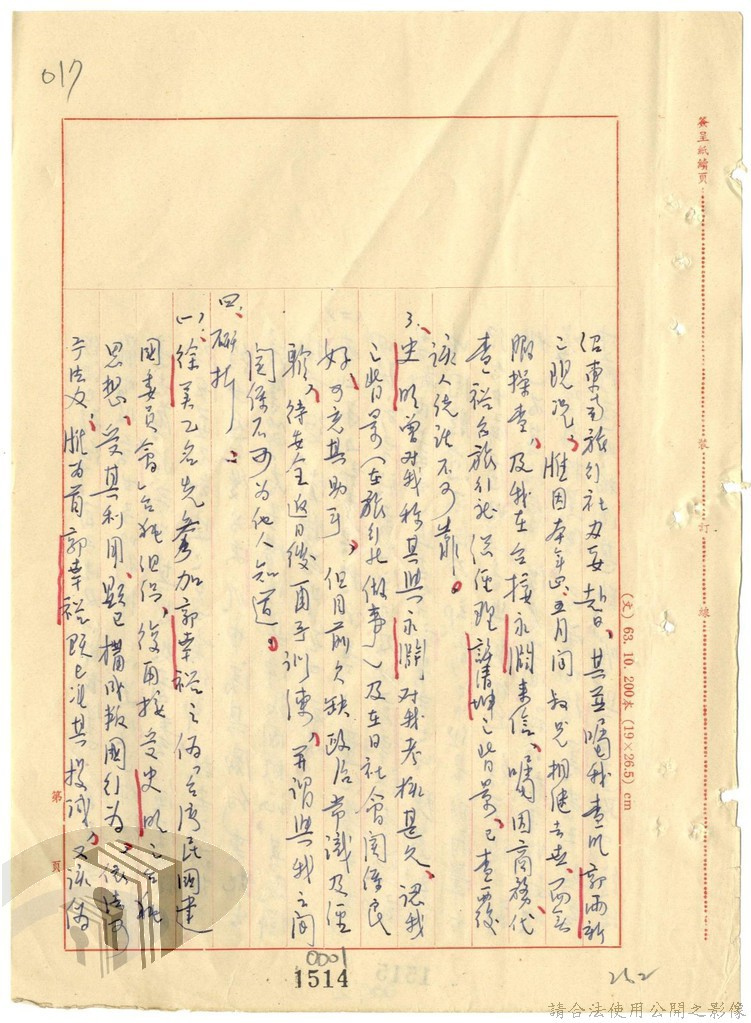 017
簽呈紙續頁
裝
訂
線
(文) 63. 10. 200本 (19×26.5) cm
紹東南旅行社力妄赴日、其並囑我查明郭雨新
之現況、惟因本年四、五月間叔兄相繼去世、而無
暇探查、及我在台接永澗來信、囑因商務代
查一裕台旅行社總經理許清坤之背景、已查覆
該人統非不可靠。
3、史明曾對我稱其與永澗對我考核甚久、認我
之背景(在旅行社做事)及在日社會關係良
好、可充其助手、但目前欠缺政治常識及經
驗、待安全返日後再予訓練、並謂與我之間
關係不可為他人知道。
四、研析:
(一)、徐美乙名先參加郭幸裕之偽「台灣民國建
國委員會」台獨組織、復再接受史明之台獨
思想、受其利用、顯已構成叛國行為、依法可
予法辦、惟為首郭幸裕既已准其投誠、又該偽
第 頁
0001
1514
262
請合法使用公開之影像